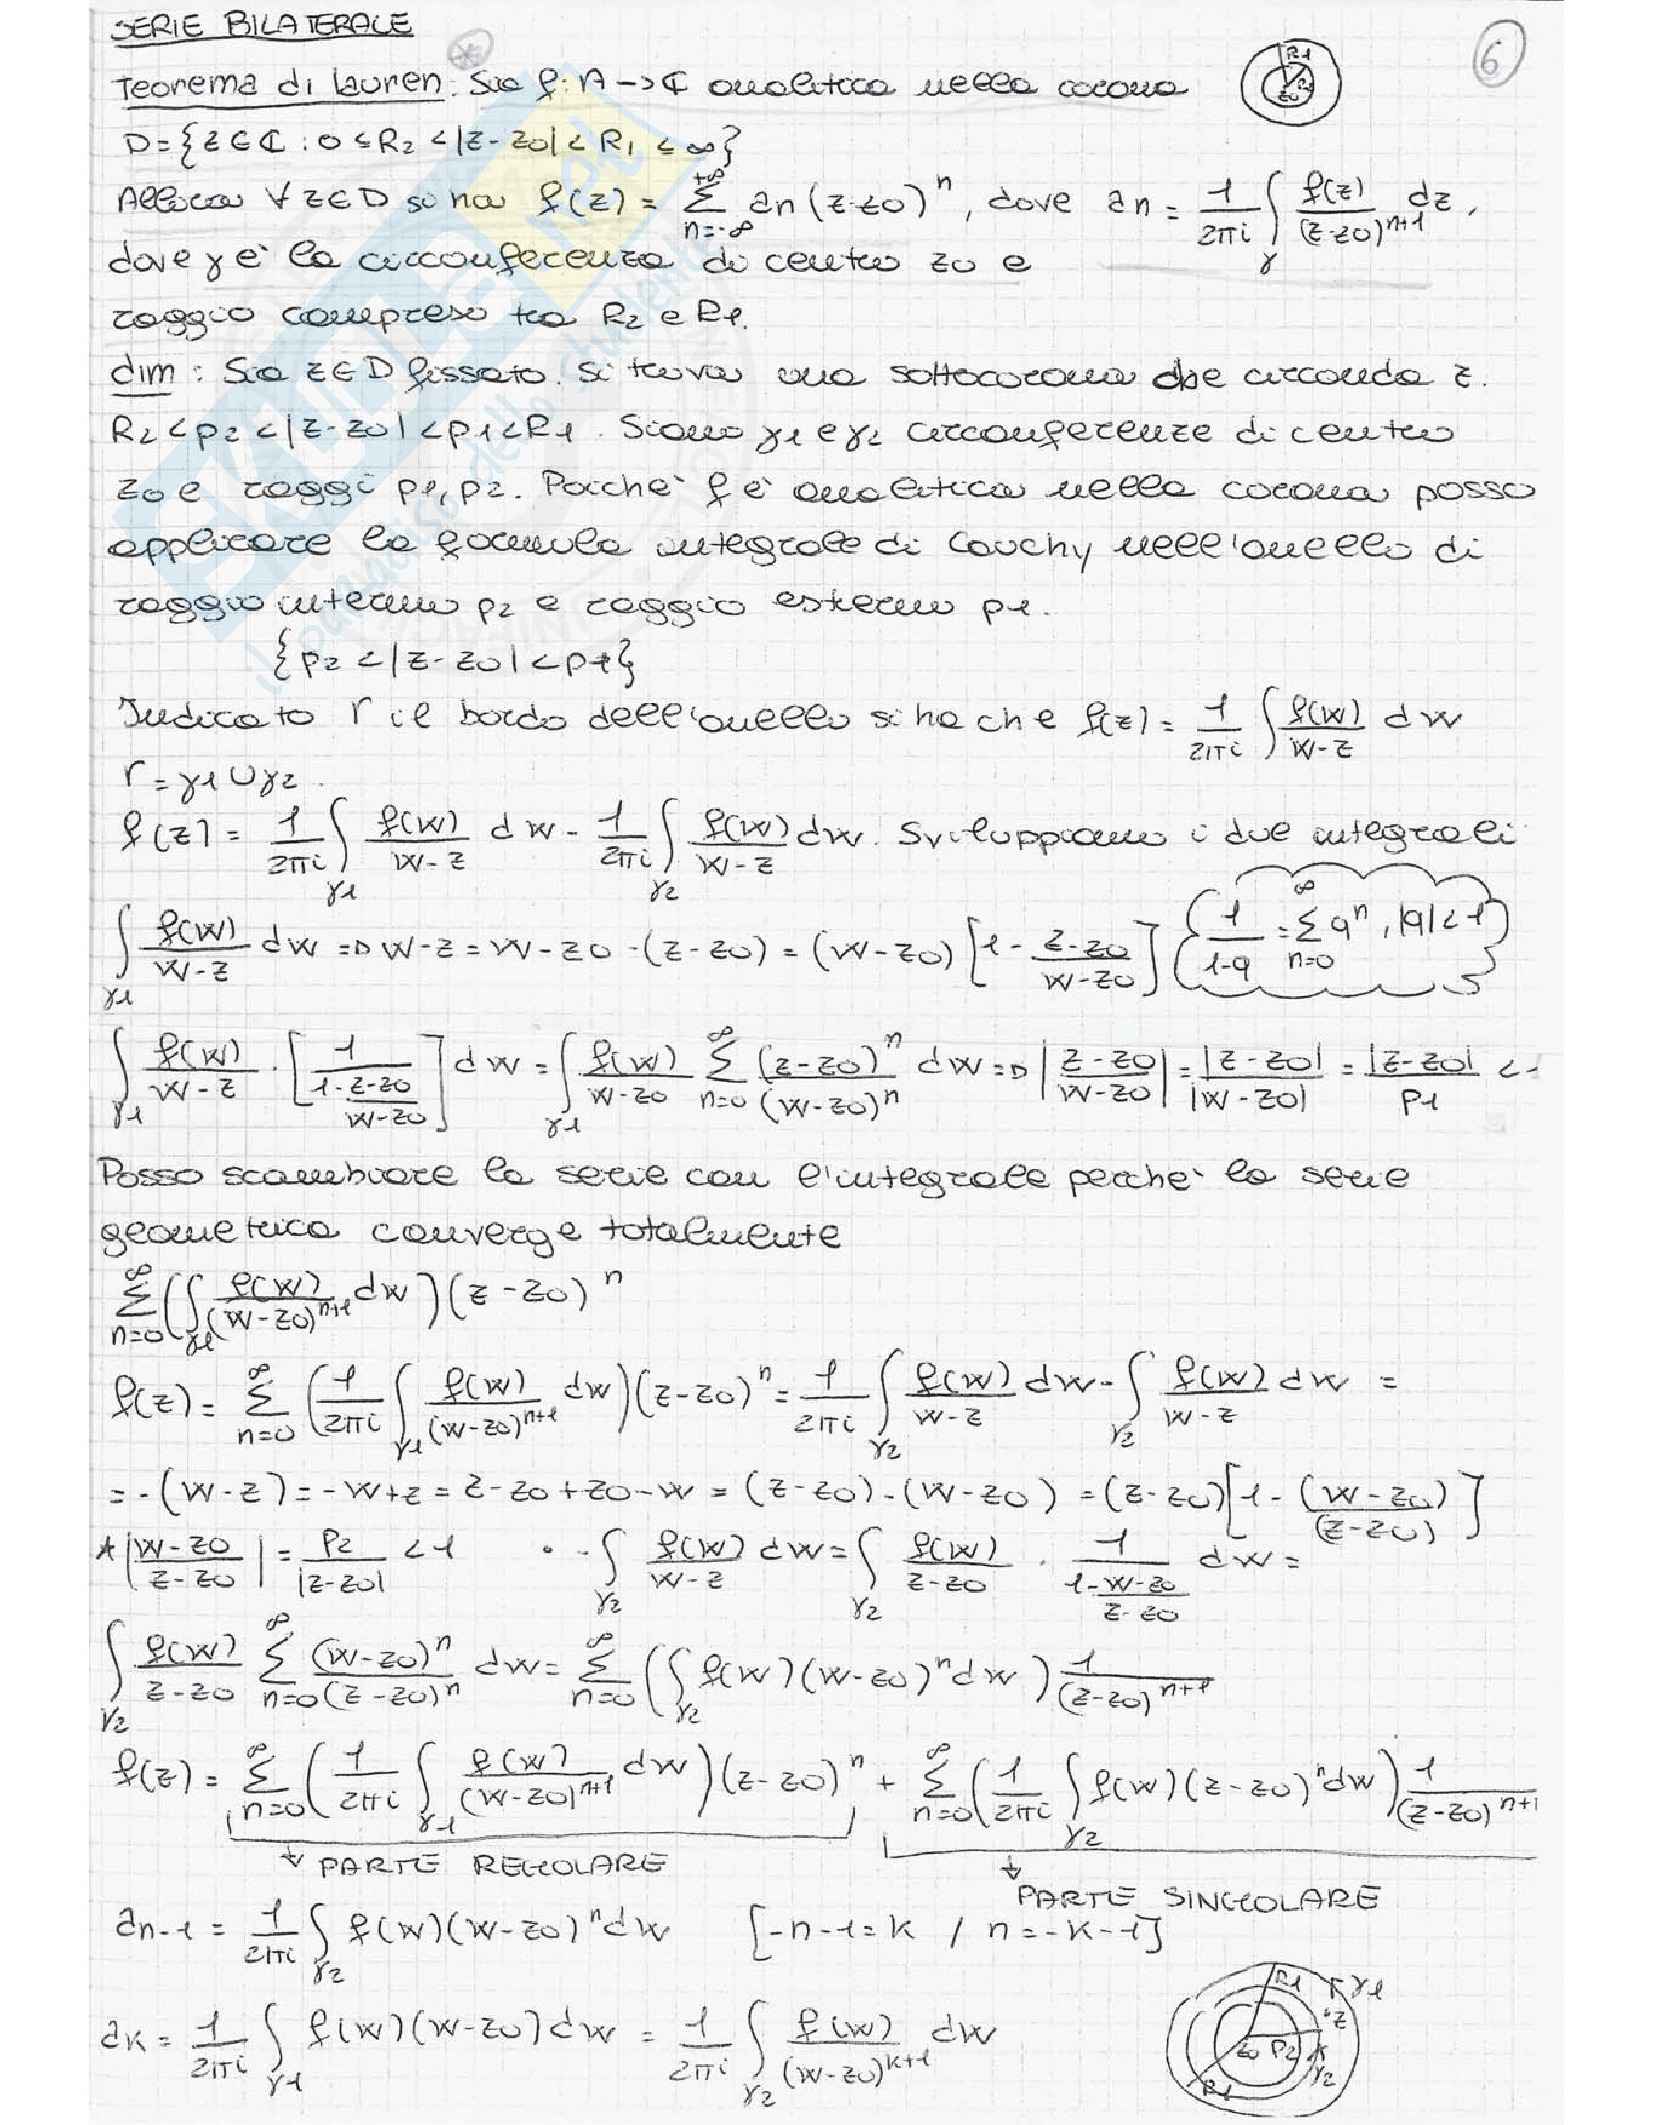 SERIE BILATERALE
6
Teorema di Lauren: Sia f: A -> ℂ analitica nella corona
D = {z ∈ ℂ : 0 ≤ R2 < |z - z0| < R1 ≤ ∞}
Allora ∀ z ∈ D si ha f(z) = Σ_{n=-∞}^{+∞} an (z-z0)^n, dove an = 1/(2πi) ∫_γ f(z)/(z-z0)^{n+1} dz,
dove γ è la circonferenza di centro z0 e
raggio compreso tra R2 e R1.
dim: Sia z ∈ D fissato. Si trova una sottocorona che circonda z.
R2 < p2 < |z-z0| < p1 < R1. Siano γ1 e γ2 circonferenze di centro
z0 e raggi p1, p2. Poiché f è analitica nella corona posso
applicare la formula integrale di Cauchy nell'anello di
raggio interno p2 e raggio esterno p1.
{p2 < |z-z0| < p1}
Indicato r il bordo dell'anello si ha che f(z) = 1/(2πi) ∫ f(w)/(w-z) dw
r = γ1 ∪ γ2.
f(z) = 1/(2πi) ∫_γ1 f(w)/(w-z) dw - 1/(2πi) ∫_γ2 f(w)/(w-z) dw. Sviluppiamo i due integrali
∫_γ1 f(w)/(w-z) dw => w-z = w-z0-(z-z0) = (w-z0) [1 - (z-z0)/(w-z0)] (1/(1-q) = Σ_{n=0}^{∞} q^n, |q|<1)
∫_γ1 f(w)/(w-z) · [1/(1-(z-z0)/(w-z0))] dw = ∫_γ1 f(w)/(w-z0) Σ_{n=0}^{∞} (z-z0)^n/(w-z0)^n dw => |(z-z0)/(w-z0)| = |z-z0|/|w-z0| = |z-z0|/p1 < 1
Posso scambiare la serie con l'integrale perché la serie
geometrica converge totalmente
Σ_{n=0}^{∞} (∫_γ1 f(w)/(w-z0)^{n+1} dw)(z-z0)^n
f(z) = Σ_{n=0}^{∞} (1/(2πi) ∫_γ1 f(w)/(w-z0)^{n+1} dw)(z-z0)^n = 1/(2πi) ∫_γ2 f(w)/(w-z) dw - ∫_γ2 f(w)/(w-z) dw =
= -(w-z) = -w+z = z-z0+z0-w = (z-z0)-(w-z0) = (z-z0)[1 - (w-z0)/(z-z0)]
* |(w-z0)/(z-z0)| = p2/|z-z0| < 1 · -∫_γ2 f(w)/(w-z) dw = ∫_γ2 f(w)/(z-z0) · 1/(1-(w-z0)/(z-z0)) dw =
∫_γ2 f(w)/(z-z0) Σ_{n=0}^{∞} (w-z0)^n/(z-z0)^n dw = Σ_{n=0}^{∞} (∫_γ2 f(w)(w-z0)^n dw) 1/(z-z0)^{n+1}
f(z) = Σ_{n=0}^{∞} (1/(2πi) ∫_γ1 f(w)/(w-z0)^{n+1} dw)(z-z0)^n + Σ_{n=0}^{∞} (1/(2πi) ∫_γ2 f(w)(z-z0)^n dw) 1/(z-z0)^{n+1}
PARTE REGOLARE
PARTE SINGOLARE
an-1 = 1/(2πi) ∫_γ2 f(w)(w-z0)^n dw [-n-1=k / n=-k-1]
ak = 1/(2πi) ∫_γ1 f(w)(w-z0) dw = 1/(2πi) ∫_γ2 f(w)/(w-z0)^{k+1} dw
R1 γ1 z z0 p2 γ2 R1